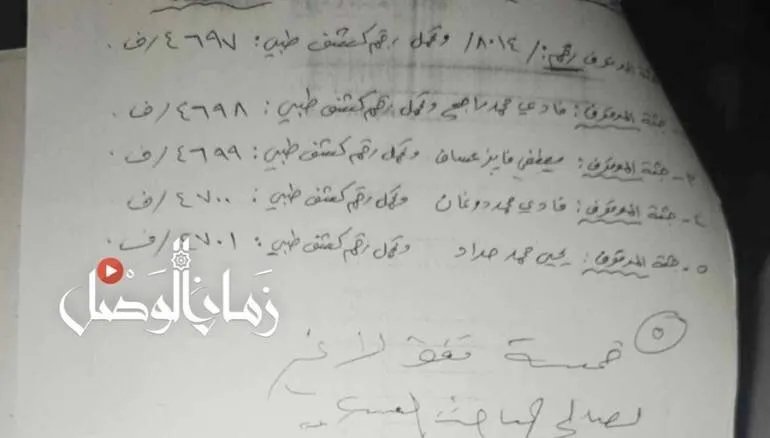 جثة الموقوف رقم: /٨٠١٤/ وتحمل رقم كشف طبي: ٤٦٩٧/ف.
جثة الموقوف: فادي محمد راجحي وتحمل رقم كشف طبي: ٤٦٩٨/ف.
٣- جثة الموقوف: مصطفى فايز عساف وتحمل رقم كشف طبي: ٤٦٩٩/ف.
٤- جثة الموقوف: فادي محمد دوغان وتحمل رقم كشف طبي: ٤٧٠٠/ف.
٥- جثة الموقوف: يحيى محمد حداد وتحمل رقم كشف طبي: ٤٧٠١/ف.
زمان الوصل
٥
خمسة لا غير
لصالح